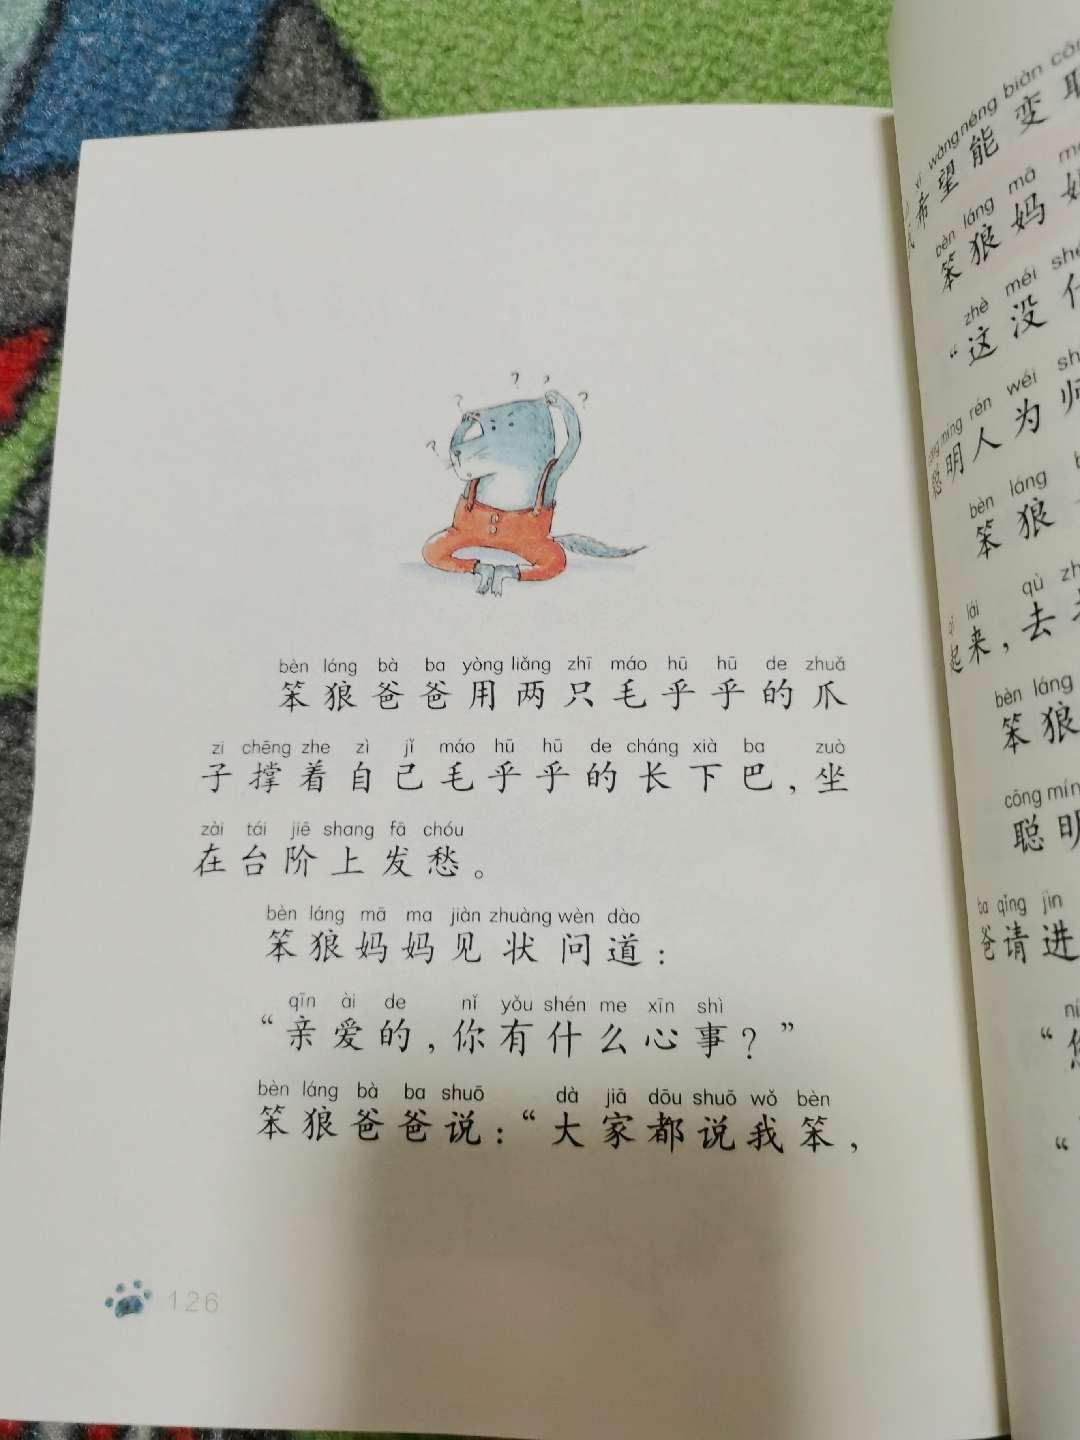 ? ? ? ? ?
bèn láng bà ba yòng liǎng zhī máo hū hū de zhuǎ
笨狼爸爸用两只毛乎乎的爪
zi chēng zhe zì jǐ máo hū hū de cháng xià ba zuò
子撑着自己毛乎乎的长下巴,坐
zài tái jiē shang fā chóu
在台阶上发愁。
bèn láng mā ma jiàn zhuàng wèn dào
笨狼妈妈见状问道:
qīn ài de nǐ yǒu shén me xīn shì
“亲爱的,你有什么心事?”
bèn láng bà ba shuō dà jiā dōu shuō wǒ bèn
笨狼爸爸说:“大家都说我笨,
126
wàng néng biàn
希望能变
bèn láng mā
笨狼妈
zhè méi
“这没
míng rén wéi
聪明人为师
bèn láng
笨狼
qǐ lái qù
起来,去
bèn láng
笨狼
cōng mín
聪明
ba qǐng jìn
爸请进
“您
“